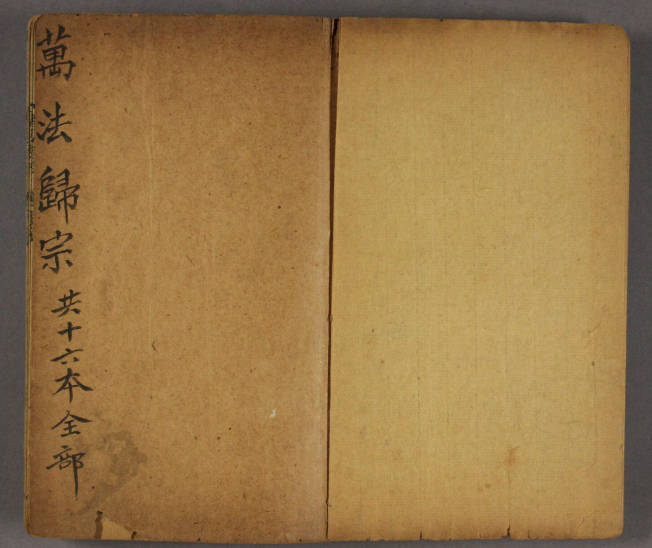 萬法歸宗
共十六本全部